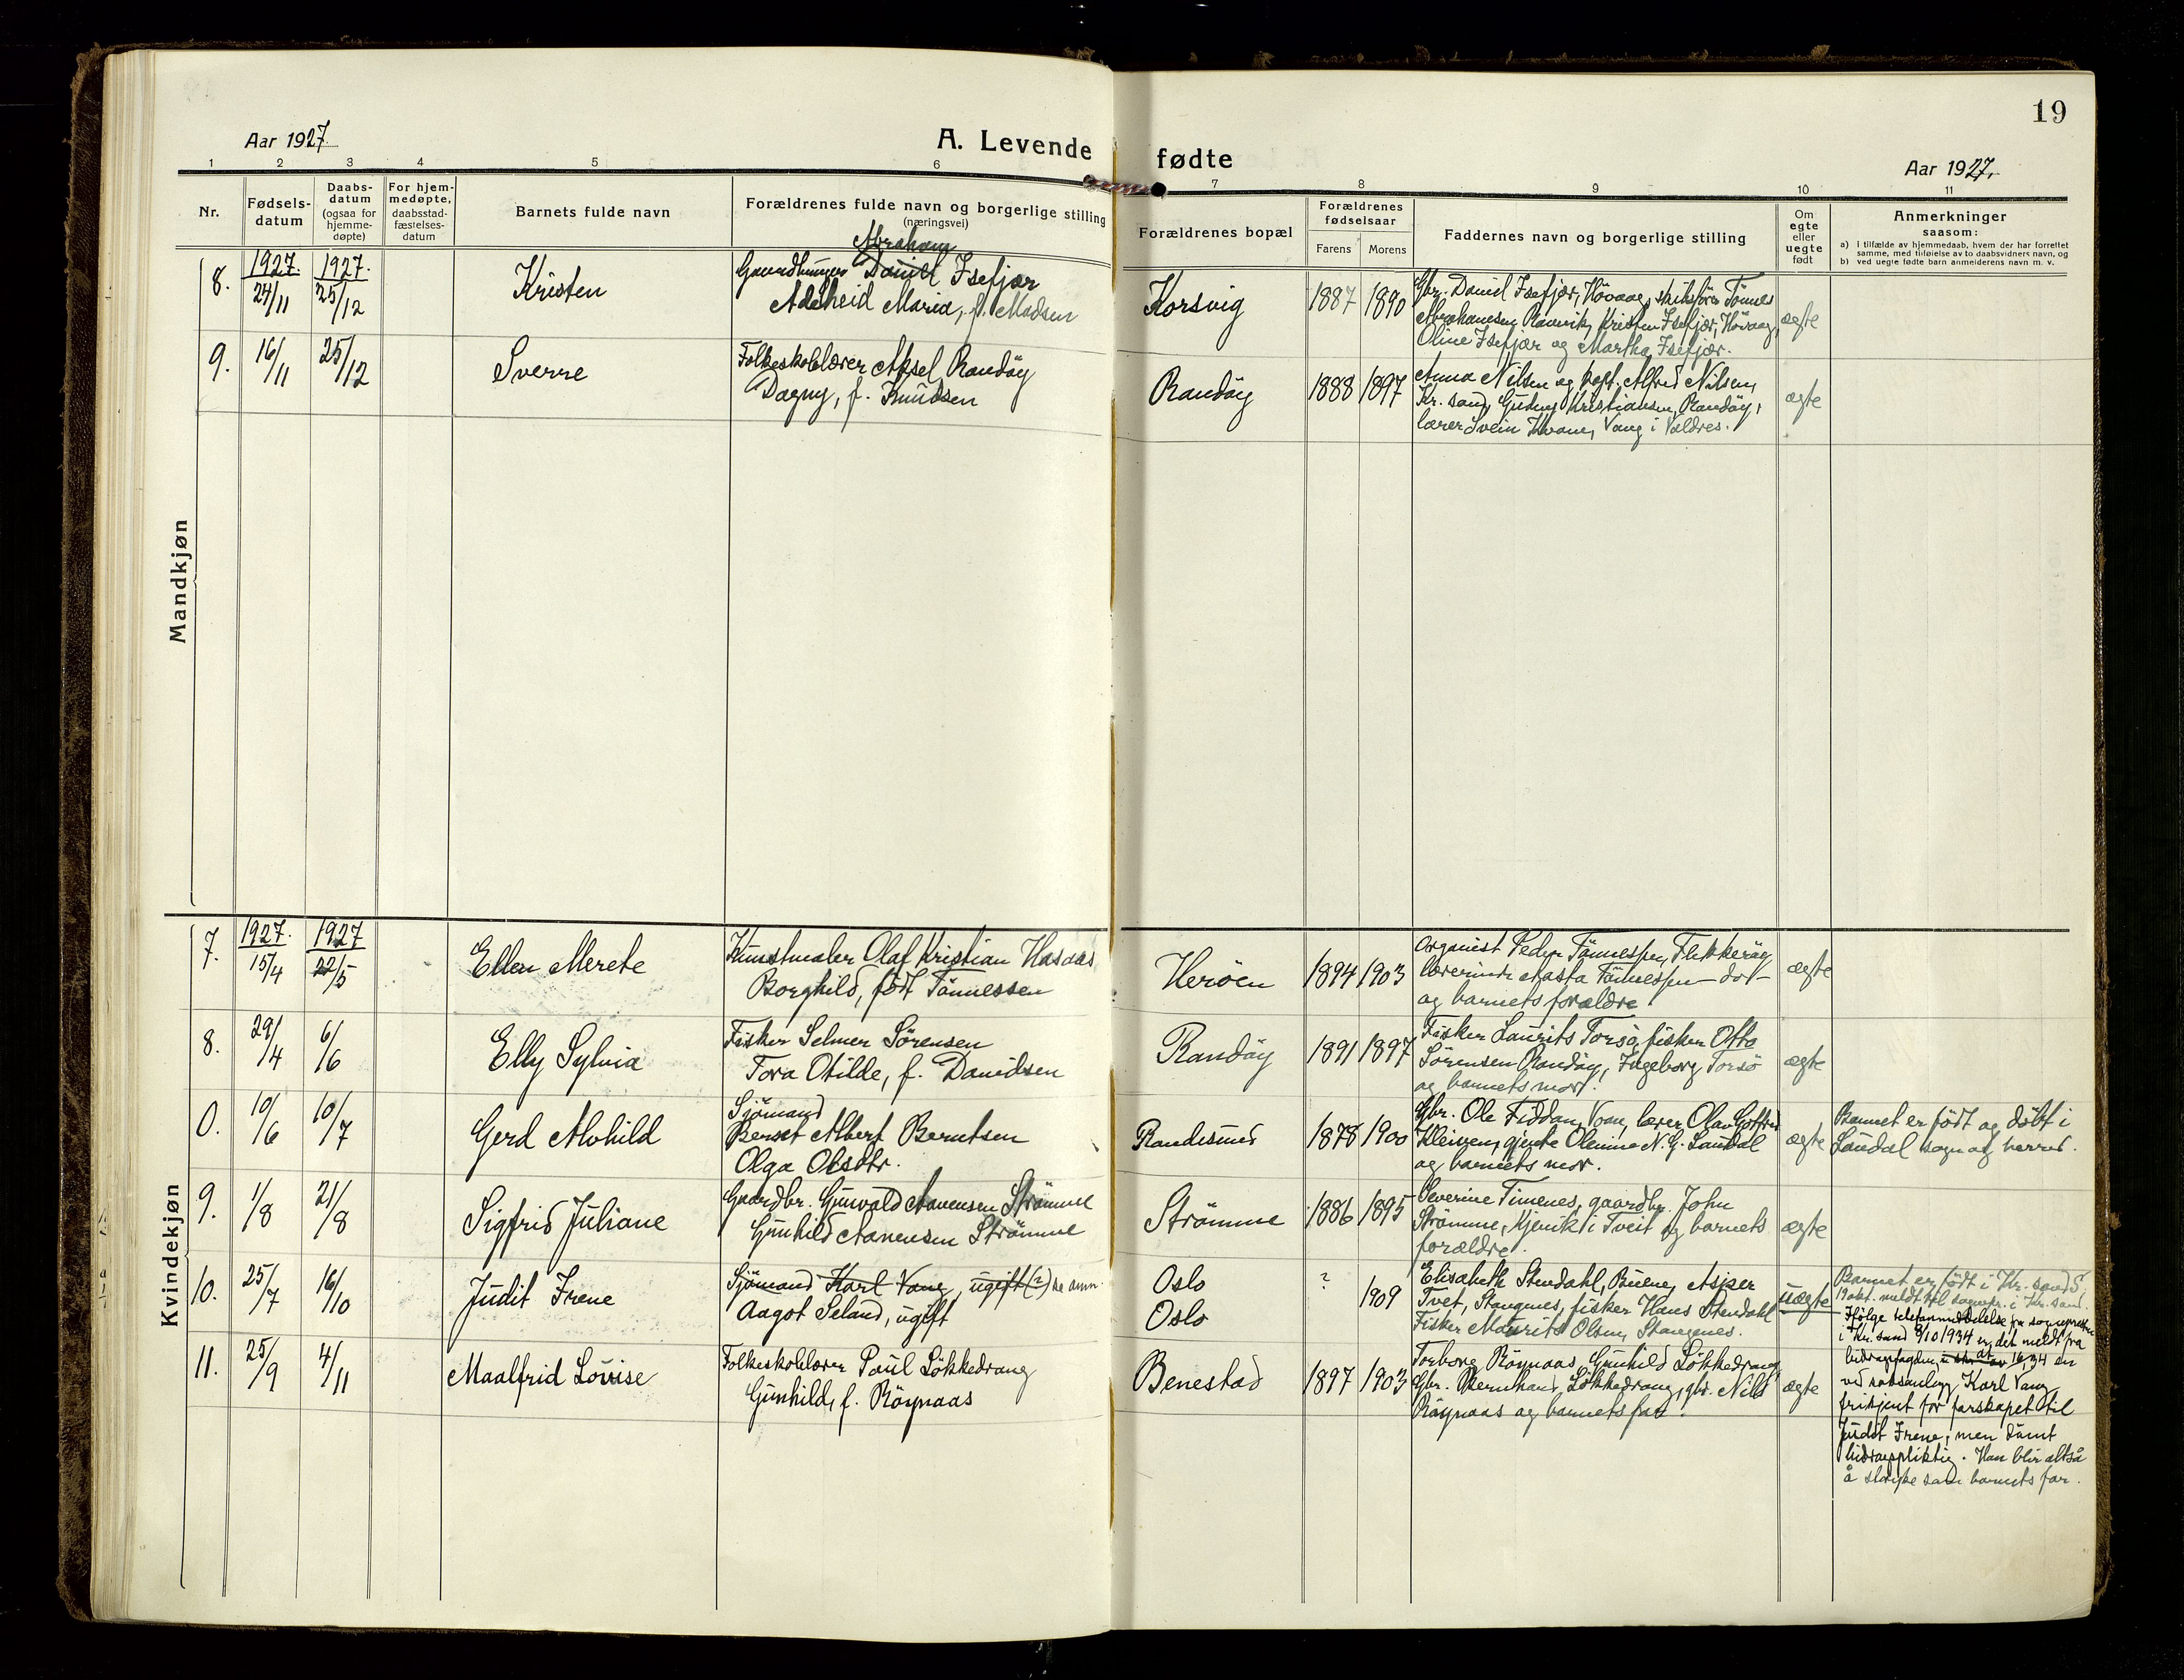 19
Aar 1927.
A. Levende fødte
Aar 1927.
1 2 3 4 5 6 7 8 9 10 11
Nr.
Fødsels-
datum
Daabs-
datum
(ogsaa for
hjemme-
døpte)
For hjem-
medøpte,
daabsstad-
fæstelses-
datum
Barnets fulde navn
Forældrenes fulde navn og borgerlige stilling
(næringsvei)
Forældrenes bopæl
Forældrenes
fødselsaar
Farens Morens
Faddernes navn og borgerlige stilling
Om
egte
eller
uegte
født
Anmerkninger
saasom:
a) i tilfælde av hjemmedaab, hvem der har forrettet
samme, med tilføielse av to daabsvidners navn, og
b) ved uegte fødte barn anmelderens navn m. v.
Mandkjøn
8.
1927.
24/11
1927.
25/12
Kristen
Abraham
Gaardbruger Daniel Isefjær
Adelheid Maria, f. Madsen
Korsvig
1887 1890
Gbr. Daniel Isefjær, Hövaag, Tönnes
Abrahamsen Kristen Isefjær, Hövaag,
Oline Isefjær og Martha Isefjær.
ægte
9.
16/11
25/12
Sverre
Folkeskolelærer Aksel Randöy
Dagny, f. Knudsen
Randöy
1888 1897
Anna Nilsen og kapt. Alfred Nilsen,
Kr.sand, Gudny Kristiansen, Randöy,
lærer Svein Kvane, Vang i Valdres.
ægte
Kvindekjøn
7.
1927.
15/4
1927
22/5
Ellen Merete
Kunstmaler Olaf Kristian Hasaas
Borghild, född Tönnessen
Heröen
1894 1903
Organist Peder Tönnessen, Flekkeröy,
lærerinde Aasta Tönnessen - do -
og barnets forældre
ægte
8.
29/4
6/6
Elly Sylvia
Fisker Selmer Sörensen
Tora Otilde, f. Davidsen
Randöy
1891 1897
Fisker Laurits Torsö, fisker Otto
Sörensen Randöy, Ingeborg Torsö
og barnets mor.
ægte
0.
10/6
10/7
Gerd Alvhild
Sjömand
Bernt Albert Berntsen
Olga Olsdtr.
Randesund
1878 1900
Gbr. Ole Fiddan, lærer Olav Gotfred
Kleiven, gjente Olemine N. G. Laudal
og barnets mor.
ægte
Barnet er födt og döbt i
Laudal sogn og herred.
9.
1/8
21/8
Sigfrid Juliane
Gaardbr. Gunvald Aanensen Strömme
Gunhild Aanensen Strömme
Strömme
1886 1895
Severine Timenes, gaardbr. John
Strömme, i Tveit og barnets
forældre.
ægte
10.
25/7
16/10
Judit Irene
Sjömand Karl Vang, ugift (?) se anm.
Aagot Seland, ugift
Oslo
Oslo
?
1909
Elisabeth Stendahl, Asper
Tvet, Stangenes, fisker Hans Stendahl
Fisker Maurits Olsen, Stangenes.
uægte
Barnet er födt i Kr.sand S,
19 okt. meldt til sognepr. i Kr.sand.
Ifölge telefonmeddelelse fra sognepresten
i Kr.sand 9/10 1934 er det meldt fra
bidragsfogden, at
ved Karl Vang
frikjent for farskapet til
Judit Irene, men dömt
bidragspliktig. Han blir altså
å slöife som barnets far.
11.
25/9
4/11
Maalfrid Lovise
Folkeskolelærer Paul Lökkedrang
Gunhild, f. Röynaas
Benestad
1897 1903
Torborg Röynaas, Gunhild Lökkedrang,
Gbr. Bernhard Lökkedrang, gbr. Nils
Röynaas og barnets far.
ægte